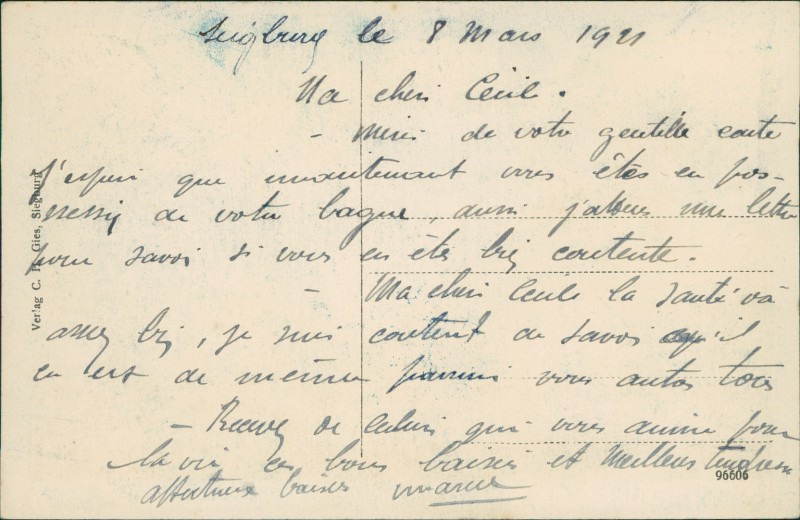 Siegburg le 8 Mars 1921
Ma cheri Cécile.
- Merci de votre gentille carte
J'espere que maintenant vous êtes en pos-
session de votre bague, aussi j'attens une lettre
pour savoi si vous en étes bien contente.
- Ma cheri Cecile la santé và
assez bien, je suis content de savoi qu'il
en est de même parmis vous autres tous
- Recevez de celui qui vous aime pour
la vie ces bons baisers et Meilleurs tendresse
affectueux baisers
Verlag C. F. Gies, Siegburg
96606